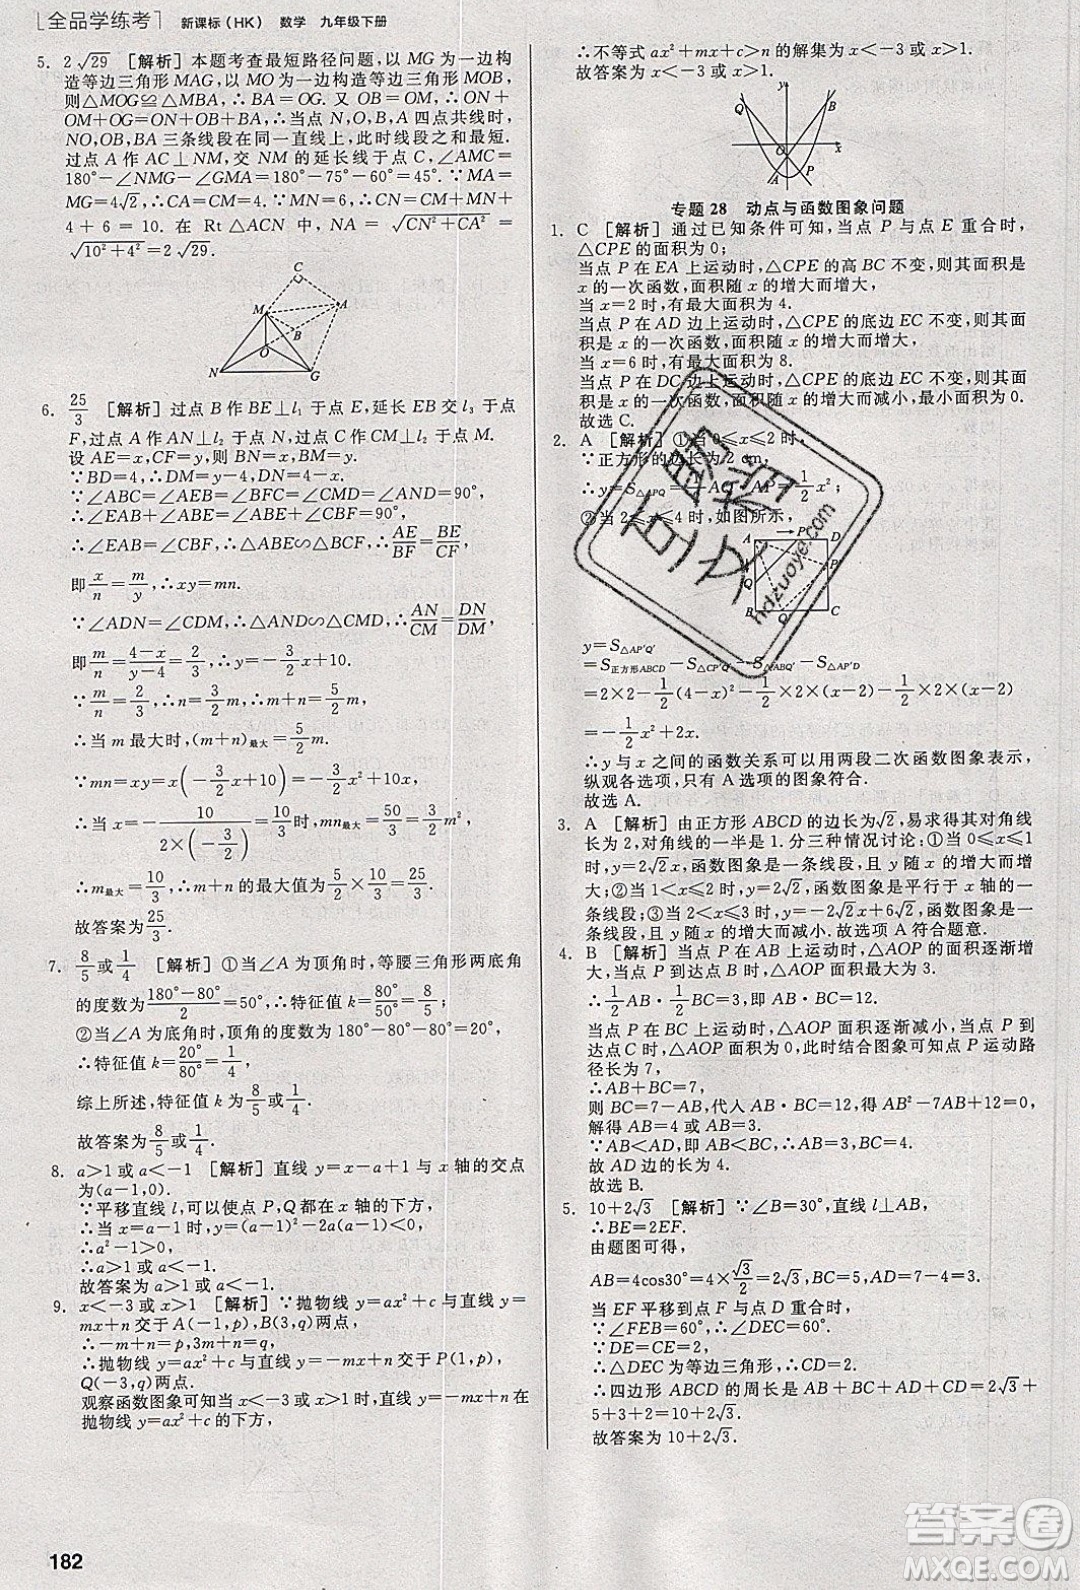 全品学练考 新课标(HK) 数学 九年级下册
5. 2√29 [解析]本题考查最短路径问题,以MG为一边构
造等边三角形MAG,以MO为一边构造等边三角形MOB,
则△MOG≌△MBA,∴BA=OG. 又OB=OM,∴ON+
OM+OG=ON+OB+BA,∴当点N,O,B,A四点共线时,
NO,OB,BA三条线段在同一直线上,此时线段之和最短.
过点A作AC⊥NM,交NM的延长线于点C,∠AMC=
180°-∠NMG-∠GMA=180°-75°-60°=45°. ∵MA=
MG=4√2,∴CA=CM=4. ∵MN=6,∴CN=CM+MN=
4+6=10. 在Rt△ACN中,NA=√(CN²+CA²)=
√(10²+4²)=2√29.
C
M A
B
O
N G
6. 25/3 [解析]过点B作BE⊥l₁于点E,延长EB交l₃于点
F,过点A作AN⊥l₂于点N,过点C作CM⊥l₂于点M.
设AE=x,CF=y,则BN=x,BM=y.
∵BD=4,∴DM=y-4,DN=4-x.
∵∠ABC=∠AEB=∠BFC=∠CMD=∠AND=90°,
∴∠EAB+∠ABE=90°,∠ABE+∠CBF=90°,
∴∠EAB=∠CBF,∴△ABE∽△BCF,∴AE/BF=BE/CF,
即x/n=m/y,∴xy=mn.
∵∠ADN=∠CDM,∴△AND∽△CMD,∴AN/CM=DN/DM,
即m/n=(4-x)/(y-4)=2/3,∴y=-3/2x+10.
∵m/n=2/3,∴n=3/2m,∴m+n=5/2m,
∴当m最大时,(m+n)最大=5/2m.
∵mn=xy=x(-3/2x+10)=-3/2x²+10x=3/2m²,
∴当x=-10/(2×(-3/2))=10/3时,mn最大=50/3=3/2m²,
∴m最大=10/3,∴m+n的最大值为5/2×10/3=25/3.
故答案为25/3.
7. 8/5或1/4 [解析]①当∠A为顶角时,等腰三角形两底角
的度数为(180°-80°)/2=50°,∴特征值k=80°/50°=8/5;
②当∠A为底角时,顶角的度数为180°-80°-80°=20°,
∴特征值k=20°/80°=1/4.
综上所述,特征值k为8/5或1/4.
故答案为8/5或1/4.
8. a>1或a<-1 [解析]直线y=x-a+1与x轴的交点
为(a-1,0).
∵平移直线l,可以使点P,Q都在x轴的下方,
∴当x=a-1时,y=(a-1)²-2a(a-1)<0,
∴a²-1>0,
∴a>1或a<-1.
故答案为a>1或a<-1.
9. x<-3或x>1 [解析]∵抛物线y=ax²+c与直线y=
mx+n交于A(-1,p),B(3,q)两点,
∴-m+n=p,3m+n=q,
∴抛物线y=ax²+c与直线y=-mx+n交于P(1,p),
Q(-3,q)两点.
观察函数图象可知当x<-3或x>1时,直线y=-mx+n在
抛物线y=ax²+c的下方,
182
∴不等式ax²+mx+c>n的解集为x<-3或x>1.
故答案为x<-3或x>1.
y
Q B
O x
A P
专题28 动点与函数图象问题
1. C [解析]通过已知条件可知,当点P与点E重合时,
△CPE的面积为0;
当点P在EA上运动时,△CPE的高BC不变,则其面积
是x的一次函数,面积随x的增大而增大,
当x=2时,有最大面积4.
当点P在AD边上运动时,△CPE的底边EC不变,则其面
积是x的一次函数,面积随x的增大而增大,
当x=6时,有最大面积8.
当点P在DC边上运动时,△CPE的底边EC不变,则其面
积是x的一次函数,面积随x的增大而减小,最小面积为0.
故选C.
2. A [解析]①当0≤x≤2时,
∵正方形的边长为2 cm,
∴y=S△APQ=1/2AQ·AP=1/2x²;
②当2≤x≤4时,如图所示,
A P D
Q P′
B Q′ C
y=S△AP′Q′
=S正方形ABCD-S△CP′Q′-S△ABQ′-S△AP′D
=2×2-1/2(4-x)²-1/2×2×(x-2)-1/2×2×(x-2)
=-1/2x²+2x.
∴y与x之间的函数关系可以用两段二次函数图象表示,
纵观各选项,只有A选项的图象符合.
故选A.
3. A [解析]由正方形ABCD的边长为√2,易求得其对角
线为2,对角线的一半是1.分三种情况讨论:①当0≤x≤1
时,y=2√2x,函数图象是一条线段,且y随x的增大而增
大;②当1<x≤2时,y=2√2,函数图象是平行于x轴的一
条线段;③当2<x≤3时,y=-2√2x+6√2,函数图象是一
条线段,y随x的增大而减小.故选项A符合题意.
4. B [解析]当点P在AB上运动时,△AOP的面积逐渐增
大,当点P到达点B时,△AOP面积最大为3.
∴1/2AB·1/2BC=3,即AB·BC=12.
当点P在BC上运动时,△AOP面积逐渐减小,当点P到
达点C时,△AOP面积为0,此时结合图象可知点P运动路
径长为7,
∴AB+BC=7.
则BC=7-AB,代入AB·BC=12,得AB²-7AB+12=0,
解得AB=4或AB=3.
∵AB<AD,即AB<BC,∴AB=3,BC=4.
故AD边的长为4.
故选B.
5. 10+2√3 [解析]∵∠B=30°,直线l⊥AB,
∴BE=2EF.
由题图可得,
AB=4cos30°=4×√3/2=2√3,BC=5,AD=7-4=3.
当EF平移到点F与点D重合时,
∵∠EFB=60°,∴∠DEC=60°.
∵DE=CE=2,
∴△DEC为等边三角形,∴CD=2,
∴四边形ABCD的周长是AB+BC+AD+CD=2√3+
5+3+2=10+2√3.
故答案为10+2√3.
hdzuoye.com
答案圈
MXQE.COM